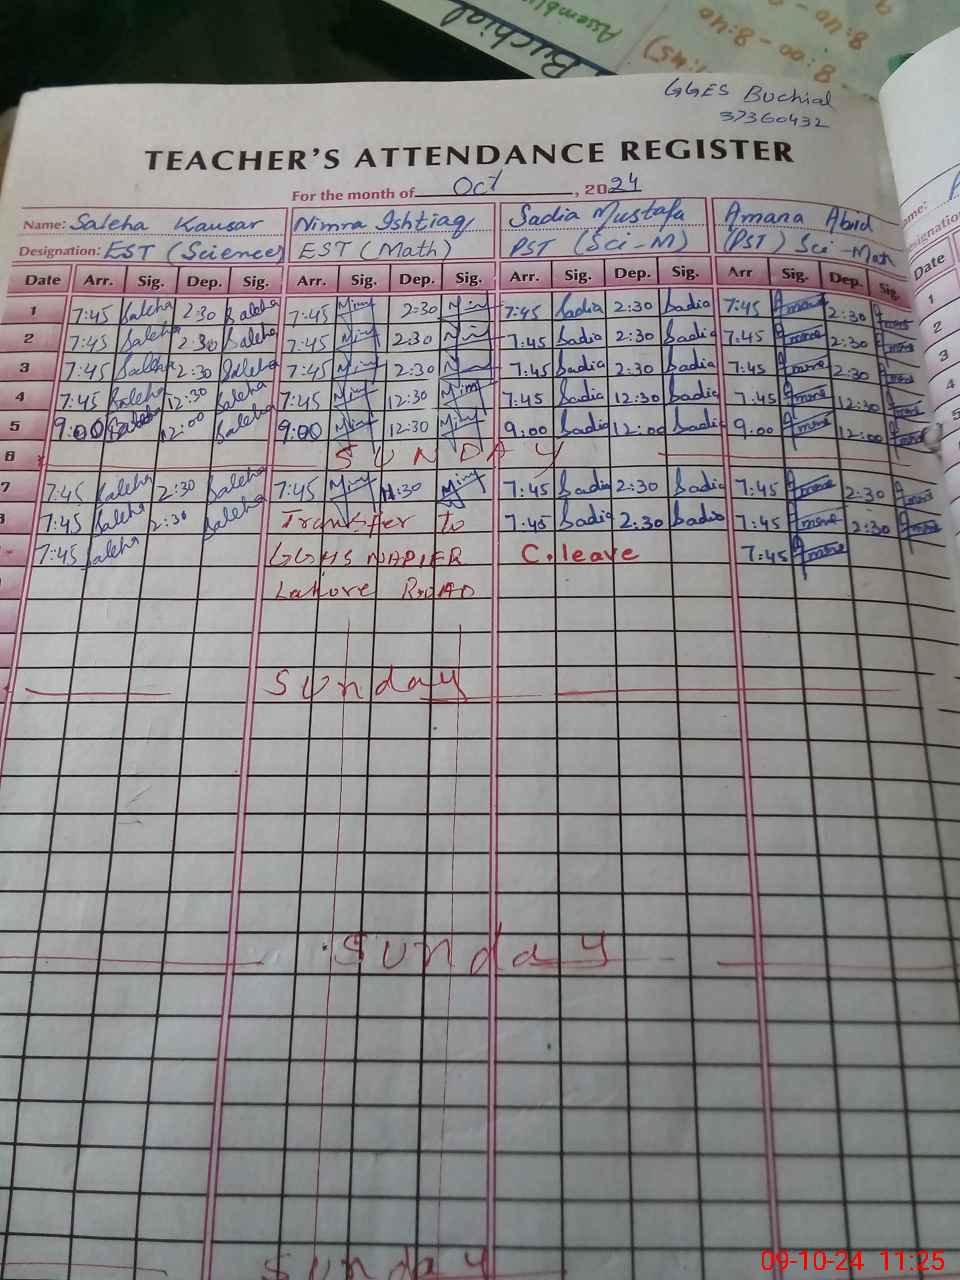 Buchial
Assembly
8:00 - 8:40
8:40
GGES Buchial
37360432
TEACHER'S ATTENDANCE REGISTER
For the month of Oct, 2024
Name: Saleha Kausar Nimra Ishtiaq Sadia Mustafa Amana Abid
Designation: EST (Science) EST (Math) PST (Sci-M) (PST) Sci-Math
Date Arr. Sig. Dep. Sig. Arr. Sig. Dep. Sig. Arr. Sig. Dep. Sig. Arr Sig. Dep. Sig. Date
1 7:45 Saleha 2:30 Saleha 7:45 Nim 2:30 Nim 7:45 Sadia 2:30 Sadia 7:45 Amana 2:30 Amana 1
2 7:45 Saleha 2:30 Saleha 7:45 Nim 2:30 Nim 7:45 Sadia 2:30 Sadia 7:45 Amana 2:30 Amana 2
3 7:45 Saleha 2:30 Saleha 7:45 Nim 2:30 Nim 7:45 Sadia 2:30 Sadia 7:45 Amana 2:30 Amana 3
4 7:45 Saleha 12:30 Saleha 7:45 Nim 12:30 Nim 7:45 Sadia 12:30 Sadia 7:45 Amana 12:30 Amana 4
5 9:00 Saleha 12:00 Saleha 9:00 Nim 12:30 Nim 9:00 Sadia 12:00 Sadia 9:00 Amana 12:00 Amana 5
6 SUNDAY
7 7:45 Saleha 2:30 Saleha 7:45 Nim 11:30 Nim 7:45 Sadia 2:30 Sadia 7:45 Amana 2:30 Amana
7:45 Saleha 2:30 Saleha Transfer to 7:45 Sadia 2:30 Sadia 7:45 Amana 2:30 Amana
7:45 Saleha GGHS NAPIER C.leave 7:45 Amana
Lahore ROAD
Sunday
Sunday
Sunday
09-10-24 11:25